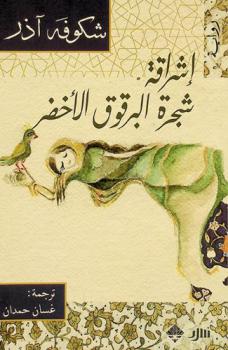 شكوفه آذر
رواية
إشراقة
شجرة البرقوق الأخضر
ترجمة:
غسان حمدان